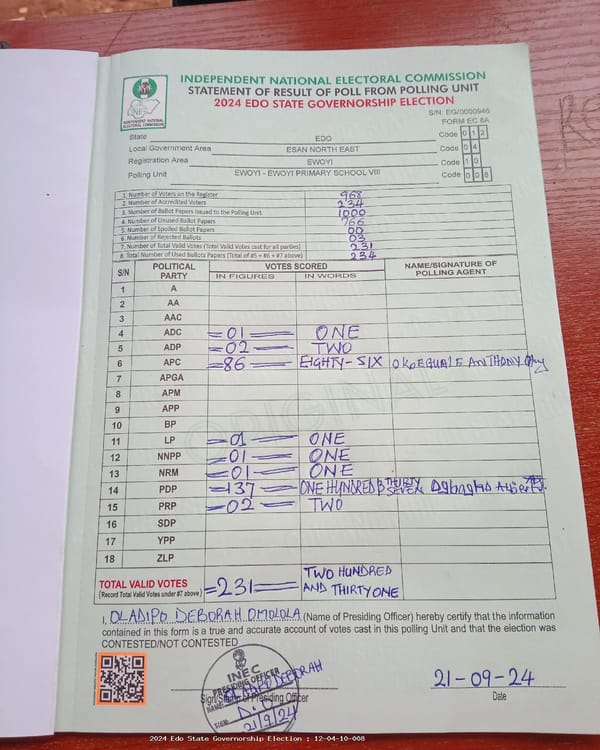 INDEPENDENT NATIONAL ELECTORAL COMMISSION
STATEMENT OF RESULT OF POLL FROM POLLING UNIT
2024 EDO STATE GOVERNORSHIP ELECTION
INEC
INDEPENDENT NATIONAL
ELECTORAL COMMISSION
S/N: EG/0000946
FORM EC 8A
State EDO Code 0 1 2
Local Government Area ESAN NORTH EAST Code 0 4
Registration Area EWOYI Code 1 0
Polling Unit EWOYI - EWOYI PRIMARY SCHOOL VIII Code 0 0 8
1. Number of Voters on the Register 968
2. Number of Accredited Voters 234
3. Number of Ballot Papers Issued to the Polling Unit 1000
4. Number of Unused Ballot Papers 766
5. Number of Spoiled Ballot Papers 00
6. Number of Rejected Ballots 03
7. Number of Total Valid Votes (Total Valid Votes cast for all parties) 231
8. Total Number of Used Ballots Papers (Total of #5 + #6 + #7 above) 234
S/N POLITICAL PARTY VOTES SCORED NAME/SIGNATURE OF POLLING AGENT
IN FIGURES IN WORDS
1 A
2 AA
3 AAC
4 ADC =01= ONE
5 ADP =02= TWO
6 APC =86= EIGHTY-SIX ANTHONY
7 APGA
8 APM
9 APP
10 BP
11 LP =01= ONE
12 NNPP =01= ONE
13 NRM =01= ONE
14 PDP =137= ONE HUNDRED & THIRTY SEVEN
15 PRP =02= TWO
16 SDP
17 YPP
18 ZLP
ORIGINAL
TOTAL VALID VOTES =231= TWO HUNDRED
(Record Total Valid Votes under #7 above) AND THIRTY ONE
I, OLADIPO DEBORAH OMOLOLA (Name of Presiding Officer) hereby certify that the information
contained in this form is a true and accurate account of votes cast in this polling Unit and that the election was
CONTESTED/NOT CONTESTED
INEC
PRESIDING OFFICER
NAME: OLADIPO DEBORAH
SIGN:
21/9/24
Presiding Officer
21-09-24
Date
2024 Edo State Governorship Election : 12-04-10-008